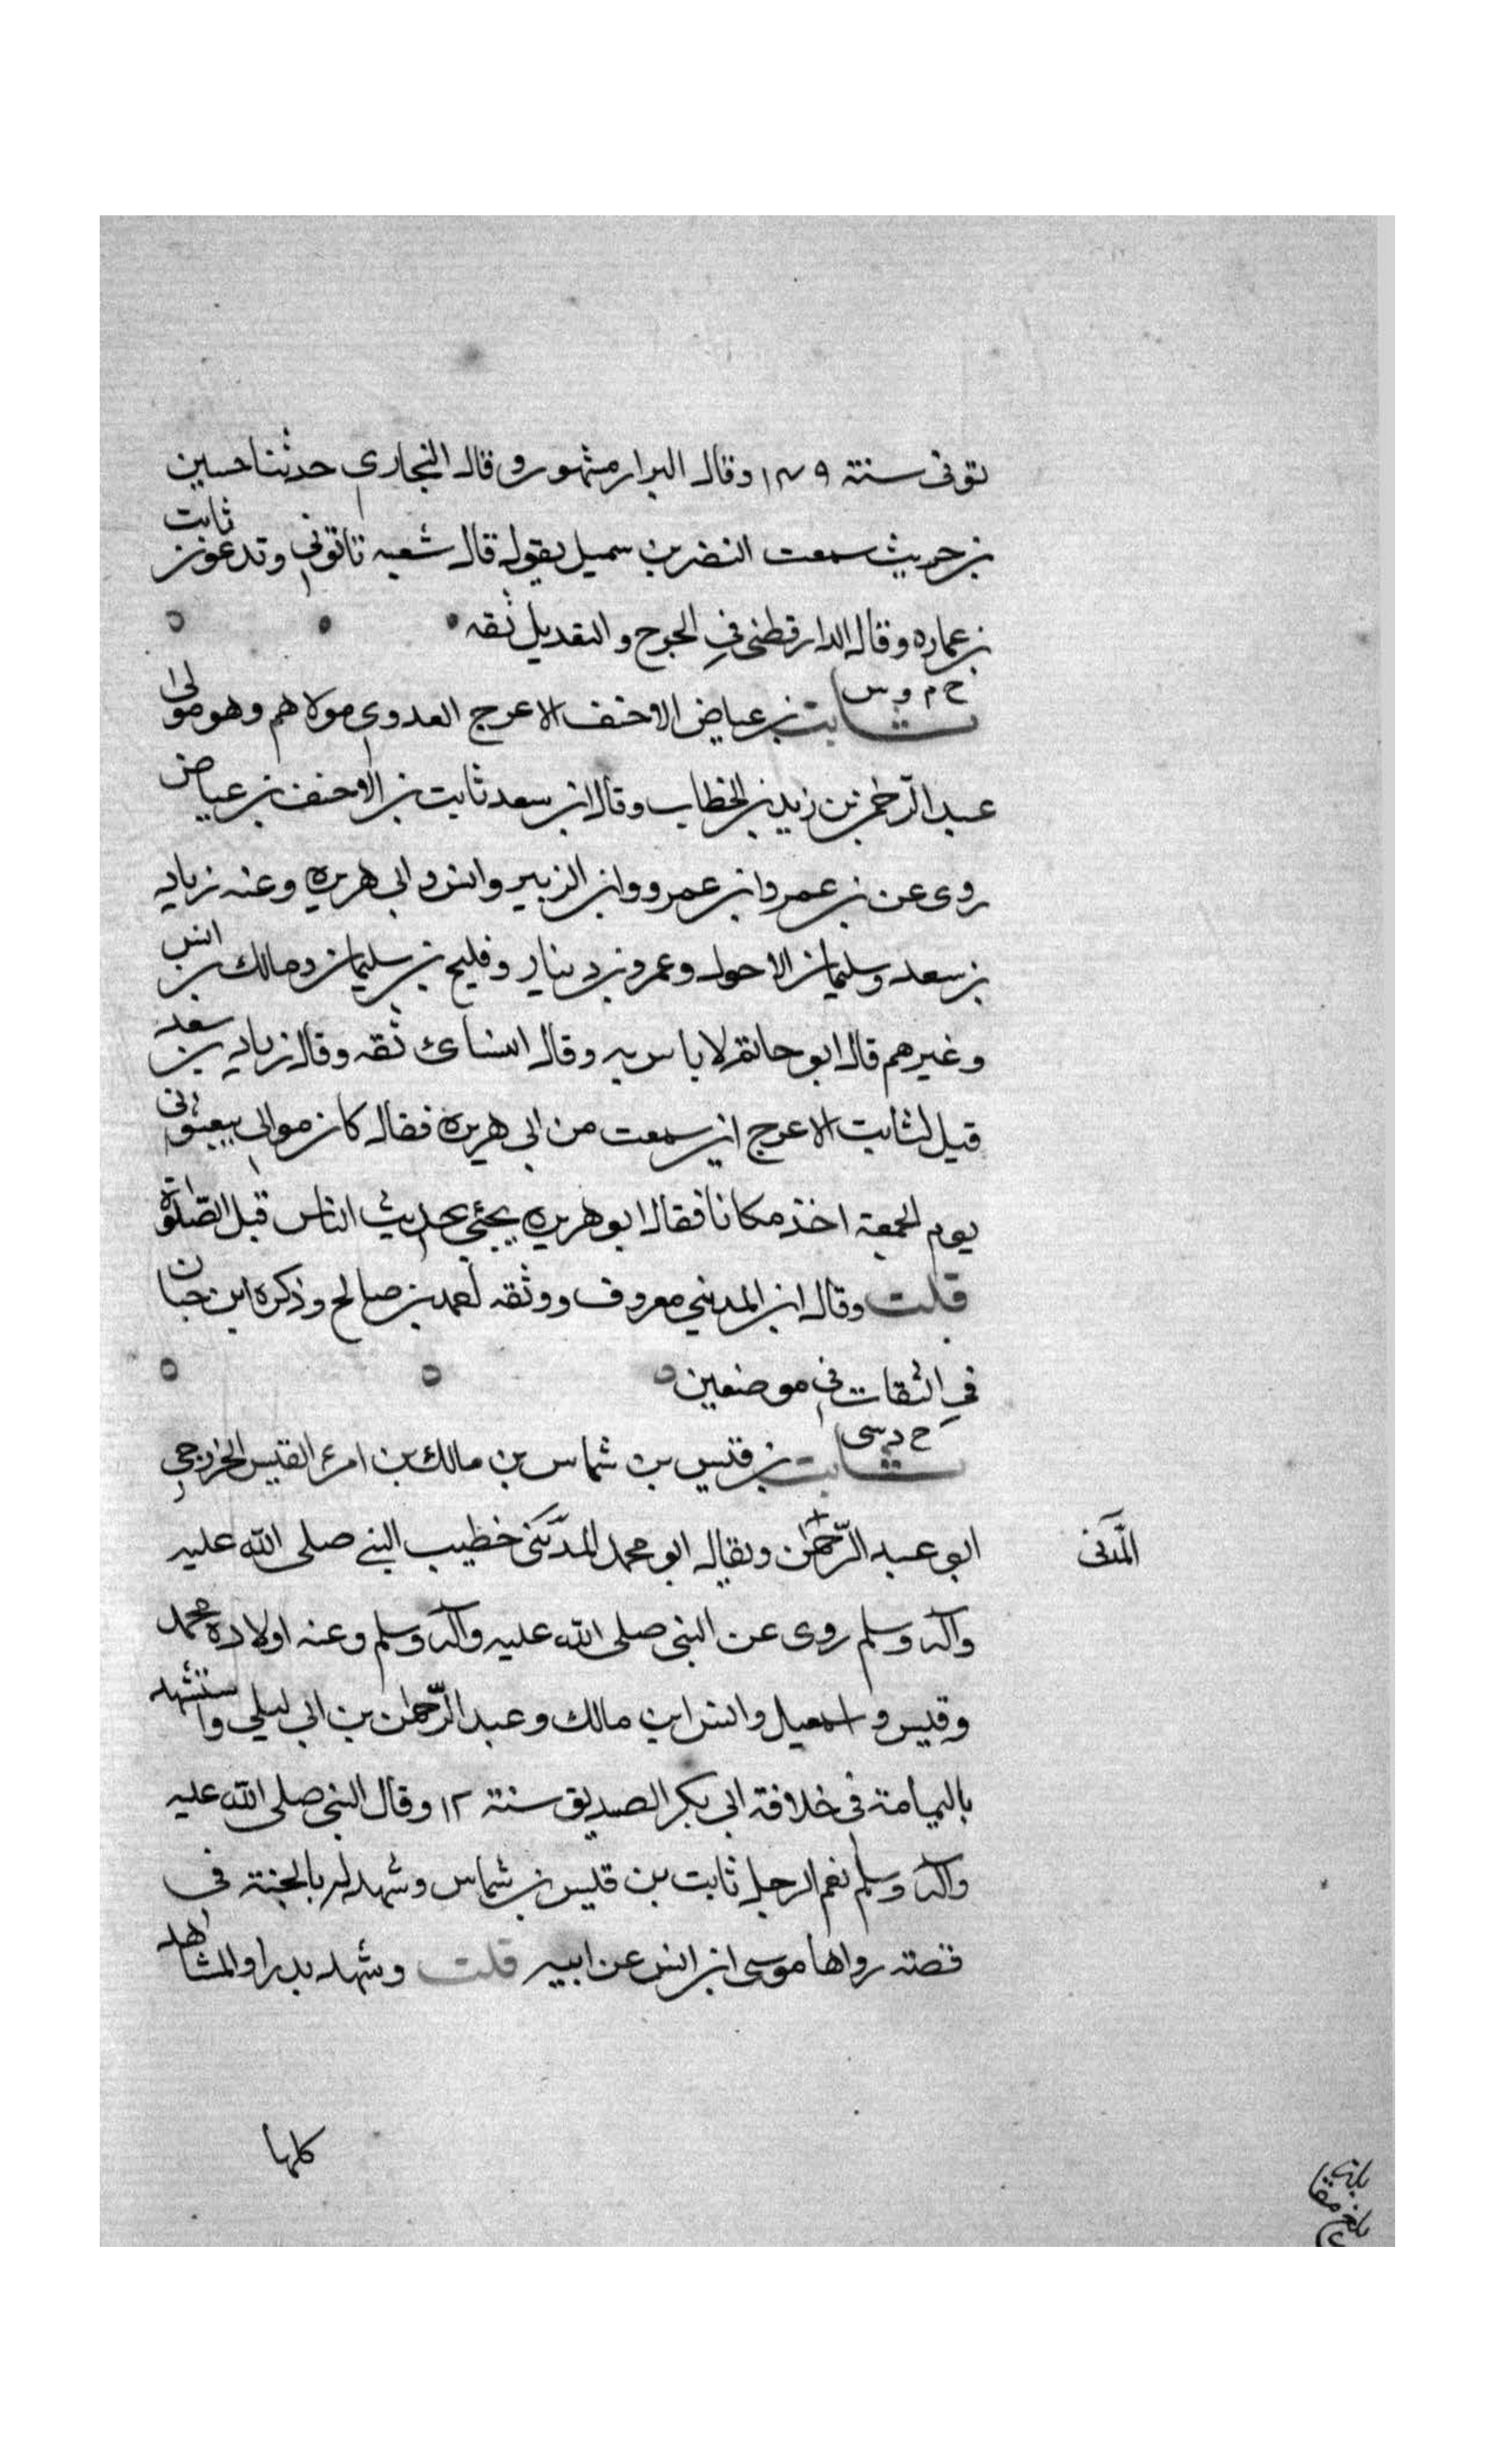 توفى سنة ١٤٩ وقال البزار مشهور وقال البخاري حدثنا حسين
بن حريث سمعت النضر بن سميل يقول قال شعبه تاتونى وتدعون ثابت
بن عماره وقال الدارقطنى في الجرح والتعديل ثقه
خ م د س
ثابت بن عياض الاحنف الاعرج العدوي مولاهم وهو مولى
عبد الرحمن بن زيد بن الخطاب وقال ابن سعد ثابت بن الاحنف بن عياض
روى عن بن عمر وابن عمرو وابن الزبير وانس وابي هريره وعنه زياد
بن سعد وسليمان الاحول وعمرو بن دينار وفليح بن سليمان ومالك بن انس
وغيرهم قال ابو حاتم لا باس به وقال النسائ ثقه وقال زياد بن سعد
قيل لثابت الاعرج اين سمعت من ابي هريرة فقال كان موالي يبعثونى
يوم الجمعة اخذ مكانا فقال ابو هريره يجئي يحديث الناس قبل الصلوة
قلت وقال ابن المديني معروف ووثقه احمد بن صالح وذكره ابن حبان
في الثقات في موضعين
خ د سى
ثابت بن قيس بن شماس بن مالك بن امرء القيس الخزرجي
ابو عبد الرحمن ويقال ابو محمد المدنى خطيب النبي صلى الله عليه
المدنى
وآله وسلم روى عن النبي صلى الله عليه وآله وسلم وعنه اولاده محمد
وقيس واسمعيل وانس ابن مالك وعبد الرحمن بن ابي ليلي واستشهد
باليمامة في خلافة ابي بكر الصديق سنة ١٢ وقال النبي صلى الله عليه
وآله وسلم نعم الرجل ثابت بن قيس بن شماس وشهد له بالجنة في
قصة رواها موسى ابن انس عن ابيه قلت وشهد بدرا والمشاهد
كلها